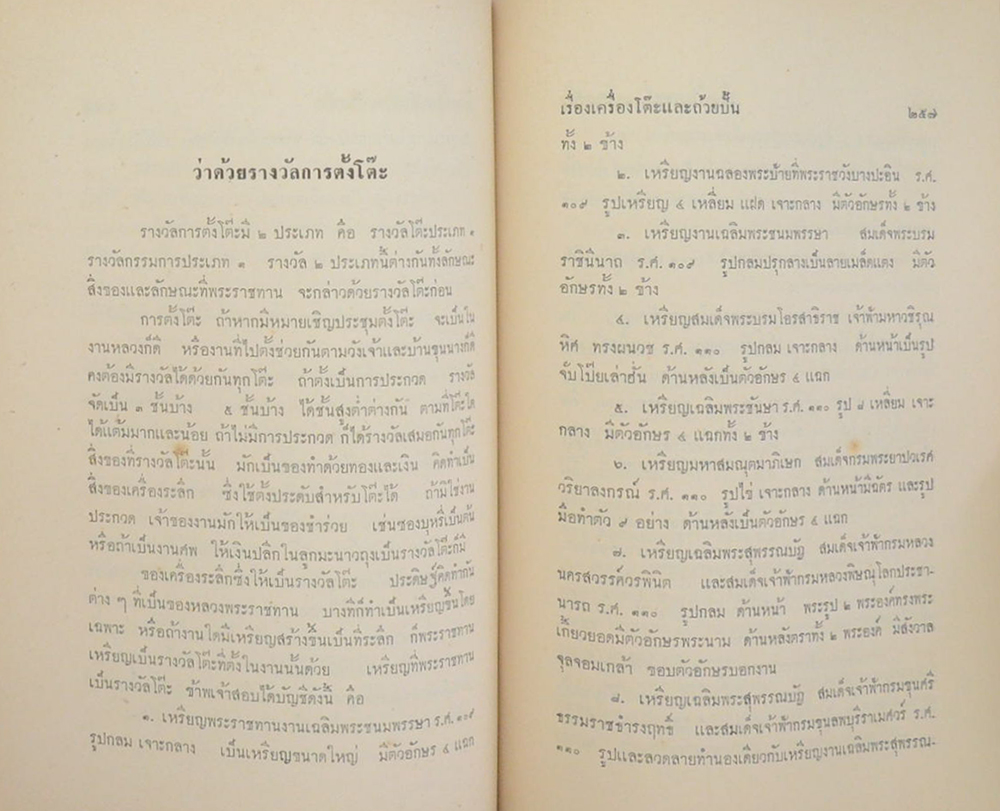 ว่าด้วยรางวัลการตั้งโต๊ะ
รางวัลการตั้งโต๊ะมี ๒ ประเภท คือ รางวัลโต๊ะประเภท ๑
รางวัลกรรมการประเภท ๑ รางวัล ๒ ประเภทนี้ต่างกันทั้งลักษณะ
สิ่งของและลักษณะที่พระราชทาน จะกล่าวด้วยรางวัลโต๊ะก่อน
การตั้งโต๊ะ ถ้าหากมีหมายเชิญประชุมตั้งโต๊ะ จะเป็นใน
งานหลวงก็ดี หรืองานที่ไปตั้งช่วยกันตามวังเจ้าและบ้านขุนนางก็ดี
คงต้องมีรางวัลได้ด้วยกันทุกโต๊ะ ถ้าตั้งเป็นการประกวด รางวัล
จัดเป็น ๓ ชั้นบ้าง ๕ ชั้นบ้าง ได้ชั้นสูงต่ำต่างกัน ตามที่โต๊ะได้
ได้แต้มมากและน้อย ถ้าไม่มีการประกวด ก็ได้รางวัลเสมอกันทุกโต๊ะ
สิ่งของที่รางวัลโต๊ะนั้น มักเป็นของทำด้วยทองและเงิน คิดทำเป็น
สิ่งของเครื่องระลึก ซึ่งใช้ตั้งประดับสำหรับโต๊ะได้ ถ้ามิใช่งาน
ประกวด เจ้าของงานมักให้เป็นของชำร่วย เช่นซองบุหรี่เป็นต้น
หรือถ้าเป็นงานศพ ให้เงินปลีกในลูกมะนาวถุงเป็นรางวัลโต๊ะก็มี
ของเครื่องระลึกซึ่งให้เป็นรางวัลโต๊ะ ประดิษฐ์คิดทำกัน
ต่าง ๆ ที่เป็นของหลวงพระราชทาน บางทีก็ทำเป็นเหรียญขึ้นโดย
เฉพาะ หรือถ้างานใดมีเหรียญสร้างขึ้นเป็นที่ระลึก ก็พระราชทาน
เหรียญเป็นรางวัลโต๊ะที่ตั้งในงานนั้นด้วย เหรียญที่พระราชทาน
เป็นรางวัลโต๊ะ ข้าพเจ้าสอบได้บัญชีดังนี้ คือ
๑. เหรียญพระราชทานงานเฉลิมพระชนมพรรษา ร.ศ. ๑๐๙
รูปกลม เจาะกลาง เป็นเหรียญขนาดใหญ่ มีตัวอักษร ๔ แฉก
เรื่องเครื่องโต๊ะและถ้วยปั้น ๒๕๗
ทั้ง ๒ ข้าง
๒. เหรียญงานฉลองพระป้ายที่พระราชวังบางปะอิน ร.ศ.
๑๐๙ รูปเหรียญ ๔ เหลี่ยม แฝด เจาะกลาง มีตัวอักษรทั้ง ๒ ข้าง
๓. เหรียญงานเฉลิมพระชนมพรรษา สมเด็จพระบรม
ราชินีนาถ ร.ศ. ๑๐๙ รูปกลมปรุกลางเป็นลายเมล็ดแตง มีตัว
อักษรทั้ง ๒ ข้าง
๔. เหรียญสมเด็จพระบรมโอรสาธิราช เจ้าฟ้ามหาวชิรุณ
หิศ ทรงผนวช ร.ศ. ๑๑๐ รูปกลม เจาะกลาง ด้านหน้าเป็นรูป
จับโป๊ยเล่าฮั่น ด้านหลังเป็นตัวอักษร ๔ แฉก
๕. เหรียญเฉลิมพระชันษา ร.ศ. ๑๑๐ รูป ๘ เหลี่ยม เจาะ
กลาง มีตัวอักษร ๔ แฉกทั้ง ๒ ข้าง
๖. เหรียญมหาสมณุตมาภิเษก สมเด็จกรมพระยาปวเรศ
วริยาลงกรณ์ ร.ศ. ๑๑๐ รูปไข่ เจาะกลาง ด้านหน้ามีฉัตร และรูป
มือทำตัว ๙ อย่าง ด้านหลังเป็นตัวอักษร ๔ แฉก
๗. เหรียญเฉลิมพระสุพรรณบัฏ สมเด็จเจ้าฟ้ากรมหลวง
นครสวรรค์วรพินิต และสมเด็จเจ้าฟ้ากรมหลวงพิษณุโลกประชา-
นารถ ร.ศ. ๑๑๐ รูปกลม ด้านหน้า พระรูป ๒ พระองค์ทรงพระ
เกี้ยวยอดมีตัวอักษรพระนาม ด้านหลังตราทั้ง ๒ พระองค์ มีสังวาล
จุลจอมเกล้า ขอบตัวอักษรบอกงาน
๘. เหรียญเฉลิมพระสุพรรณบัฏ สมเด็จเจ้าฟ้ากรมขุนศรี
ธรรมราชธำรงฤทธิ์ และสมเด็จเจ้าฟ้ากรมขุนลพบุรีราเมศวร์ ร.ศ.
๑๑๐ รูปและลวดลายทำนองเดียวกับเหรียญงานเฉลิมพระสุพรรณ-